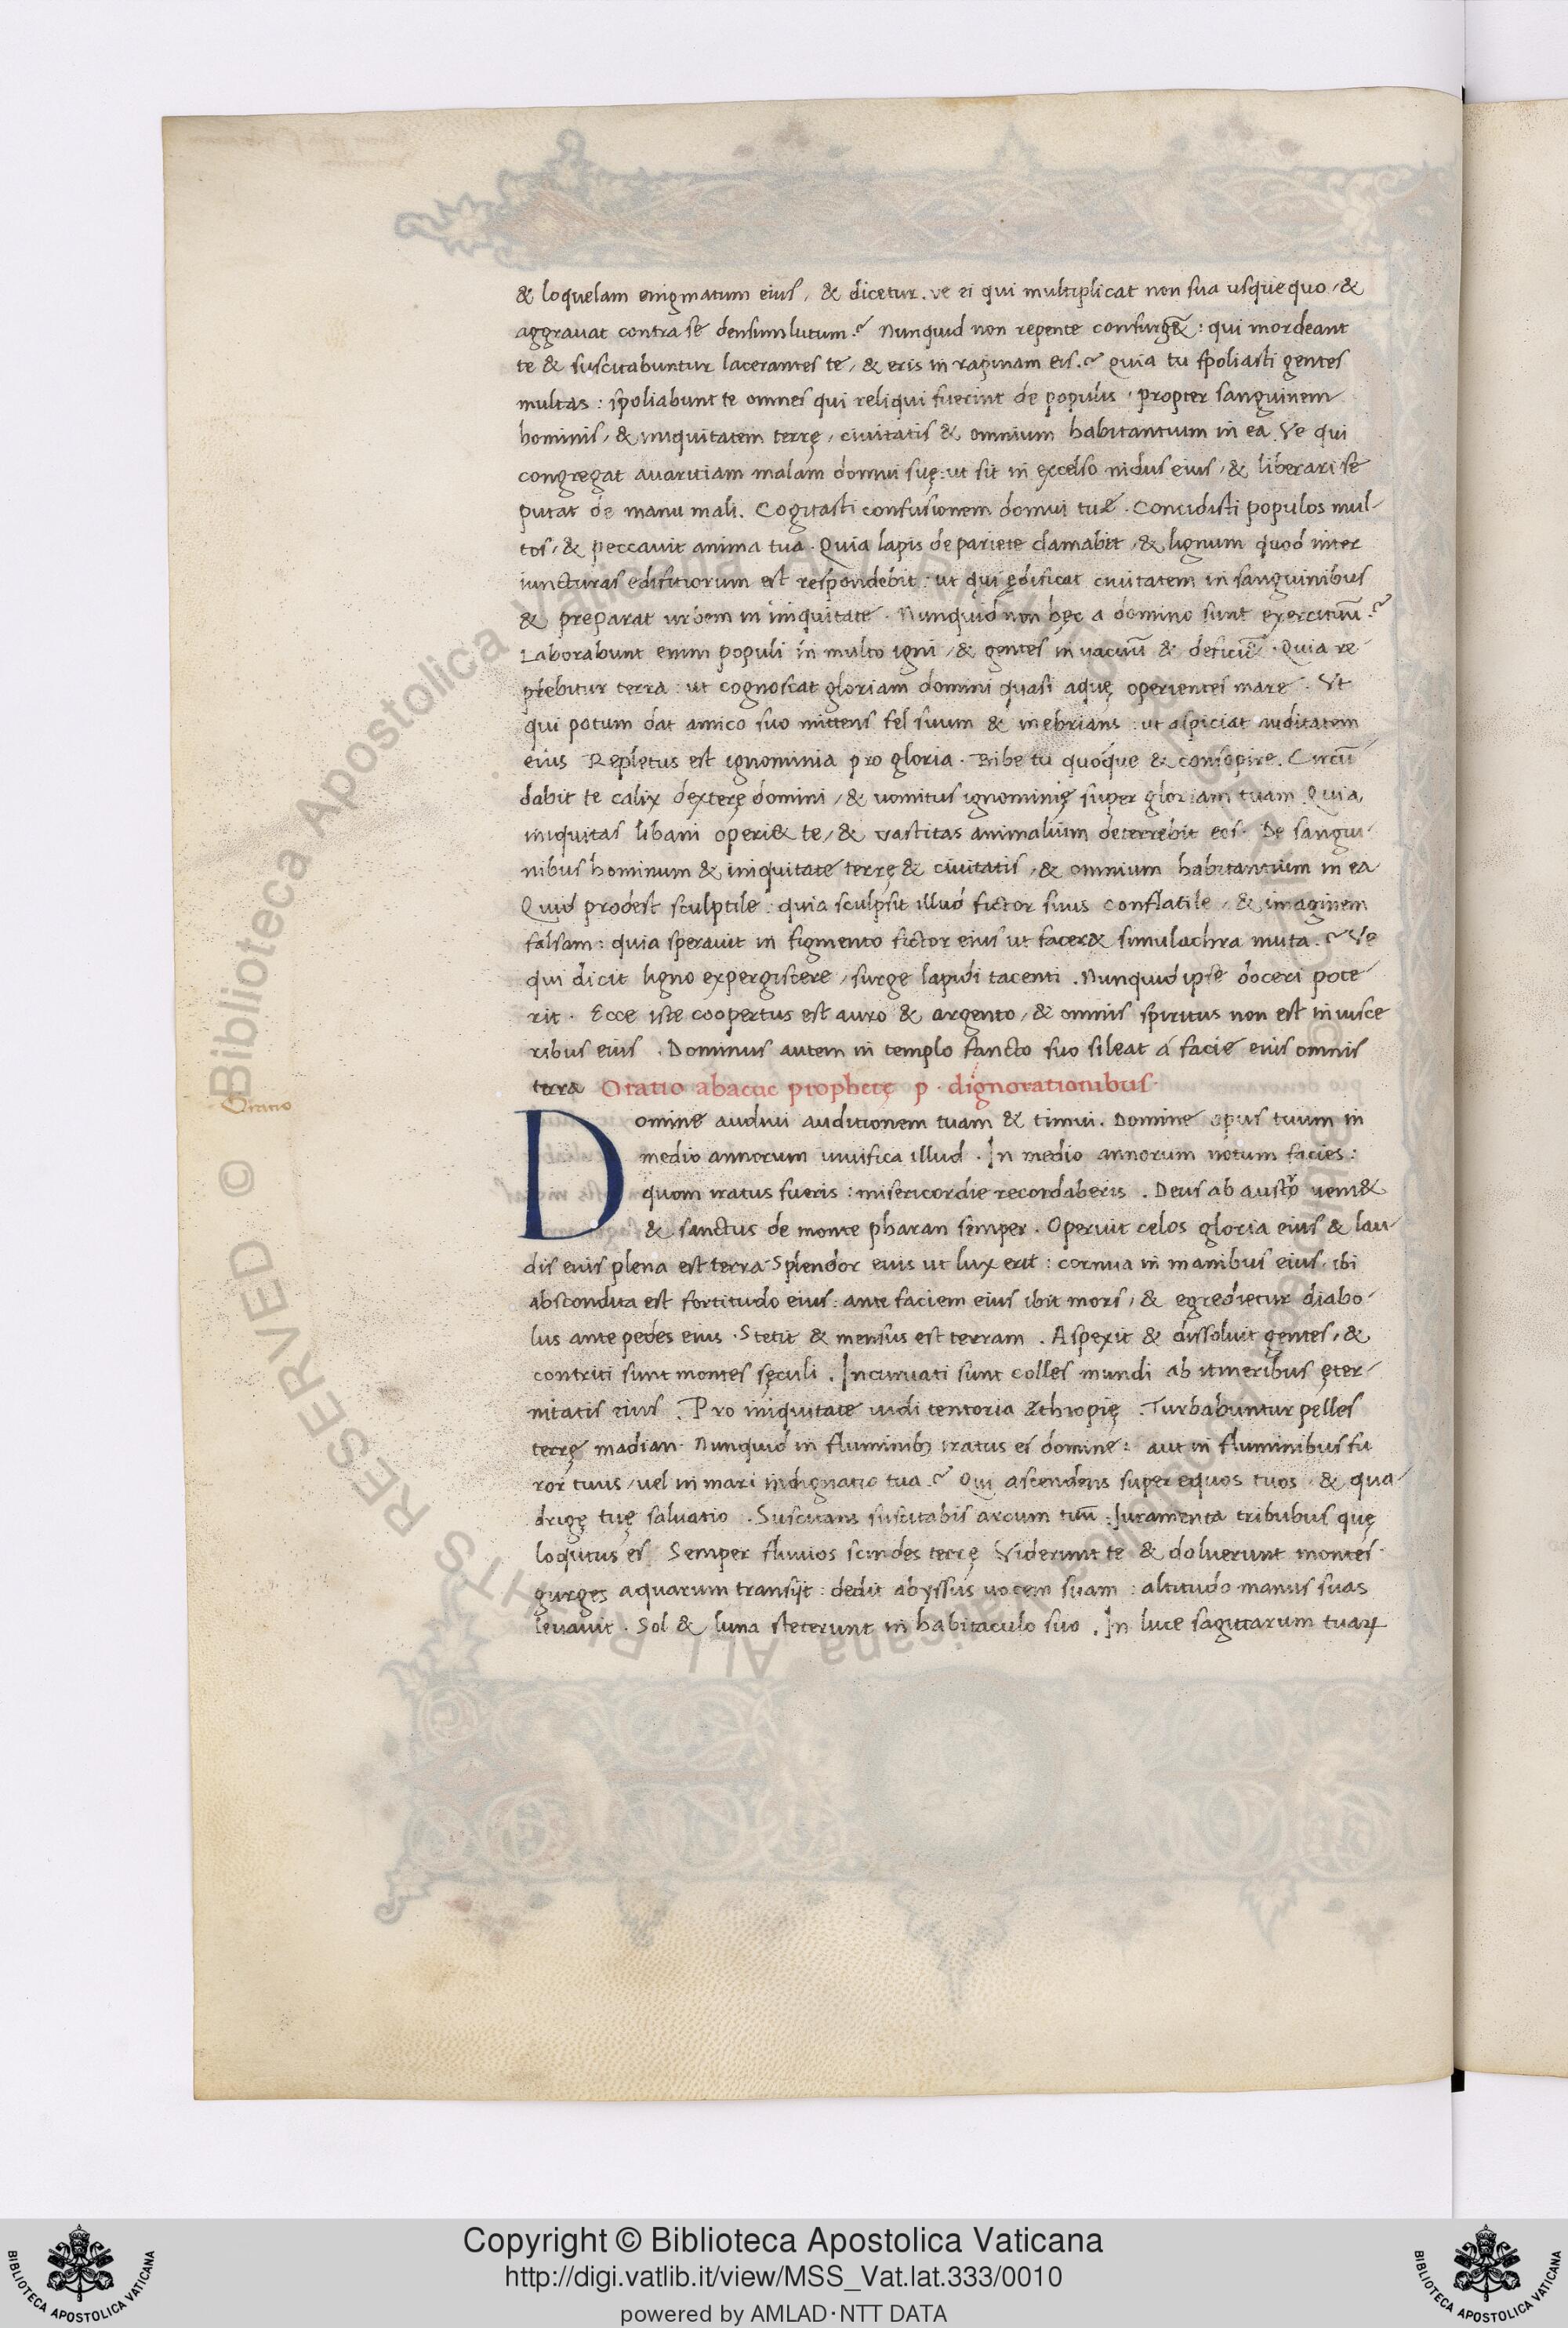 & loquelam enigmatum eius, & dicetur. ve ei qui multiplicat non sua usquequo, &
aggrauat contra se densum lutum.? Nunquid non repente consurgẽt : qui mordeant
te & suscitabuntur lacerantes te, & eris in rapinam eis.? Quia tu spoliasti gentes
multas : spoliabunt te omnes qui reliqui fuerint de populis · propter sanguinem
hominis, & iniquitatem terrę, ciuitatis & omnium habitantium in ea. Ve qui
congregat auaritiam malam domui suę : ut sit in excelso nidus eius, & liberari se
putat de manu mali. Cogitasti confusionem domui tuę . Concidisti populos mul-
tos, & peccauit anima tua . Quia lapis de pariete clamabit, & lignum quod inter
iuncturas edifitiorum est respondebit : ut qui ędificat ciuitatem in sanguinibus
& preparat urbem in iniquitate . Nunquid non hęc a domino sunt exercituũ.?
Laborabunt enim populi in multo igni, & gentes in vacuũ & deficiũt. Quia re-
plebitur terra : ut cognoscat gloriam domini quasi aquę operientes mare . Vt
qui potum dat amico suo mittens fel suum & inebrians : ut aspiciat nuditatem
eius Repletus est ignominia pro gloria . Bibe tu quoque & consopire. Circũ-
dabit te calix dexterę domini, & uomitus ignominię super gloriam tuam Quia
iniquitas libani operi& te, & vastitas animalium deterrebit eos. De sangui-
nibus hominum & iniquitate terrę & ciuitatis, & omnium habitantium in ea
Quid prodest sculptile : quia sculpsit illud fictor suus conflatile, & imaginem
falsam : quia sperauit in figmento fictor eius ut facer& simulachra muta.? Ve
qui dicit ligno expergiscere, surge lapidi tacenti . Nunquid ipse doceri pote-
rit . Ecce iste coopertus est auro & argento, & omnis spiritus non est in uisce
ribus eius . Dominus autem in templo sancto suo sileat á facie eius omnis
terra Oratio abacuc prophetę p. dignorationibus.
Oratio
Domine audiui auditionem tuam & timui. Domine opus tuum in
medio annorum uiuifica illud . In medio annorum notum facies :
quom iratus fueris : misericordie recordaberis . Deus ab austro ueni&
& sanctus de monte pharan semper . Operuit celos gloria eius & lau-
dis eius plena est terra Splendor eius ut lux erit : cornua in manibus eius, ibi
abscondita est fortitudo eius : ante faciem eius ibit mors, & egredietur diabo-
lus ante pedes eius . Stetit & mensus est terram . Aspexit & dissoluit gentes, &
contriti sunt montes sęculi . Incuruati sunt colles mundi ab itineribus ęter-
nitatis eius . Pro iniquitate uidi tentoria ęthiopię . Turbabuntur pelles
terrę madian . Nunquid in fluminibꝫ iratus es domine : aut in fluminibus fu
ror tuus, uel in mari indignatio tua.? Qui ascendens super equos tuos, & qua-
drigę tuę saluatio . Suscitans suscitabis arcum tuũ : Iuramenta tribubus quę
loqutus es. Semper fluuios scindes terrę Viderunt te & doluerunt montes
gurges aquarum transijt : dedit abyssus uocem suam : altitudo manus suas
leuauit . Sol & luna steterunt in habitaculo suo . In luce sagittarum tuaꝝ
© Biblioteca Apostolica Vaticana ALL RIGHTS RESERVED
Copyright © Biblioteca Apostolica Vaticana
http://digi.vatlib.it/view/MSS_Vat.lat.333/0010
powered by AMLAD·NTT DATA
BIBLIOTECA APOSTOLICA VATICANA
BIBLIOTECA APOSTOLICA VATICANA